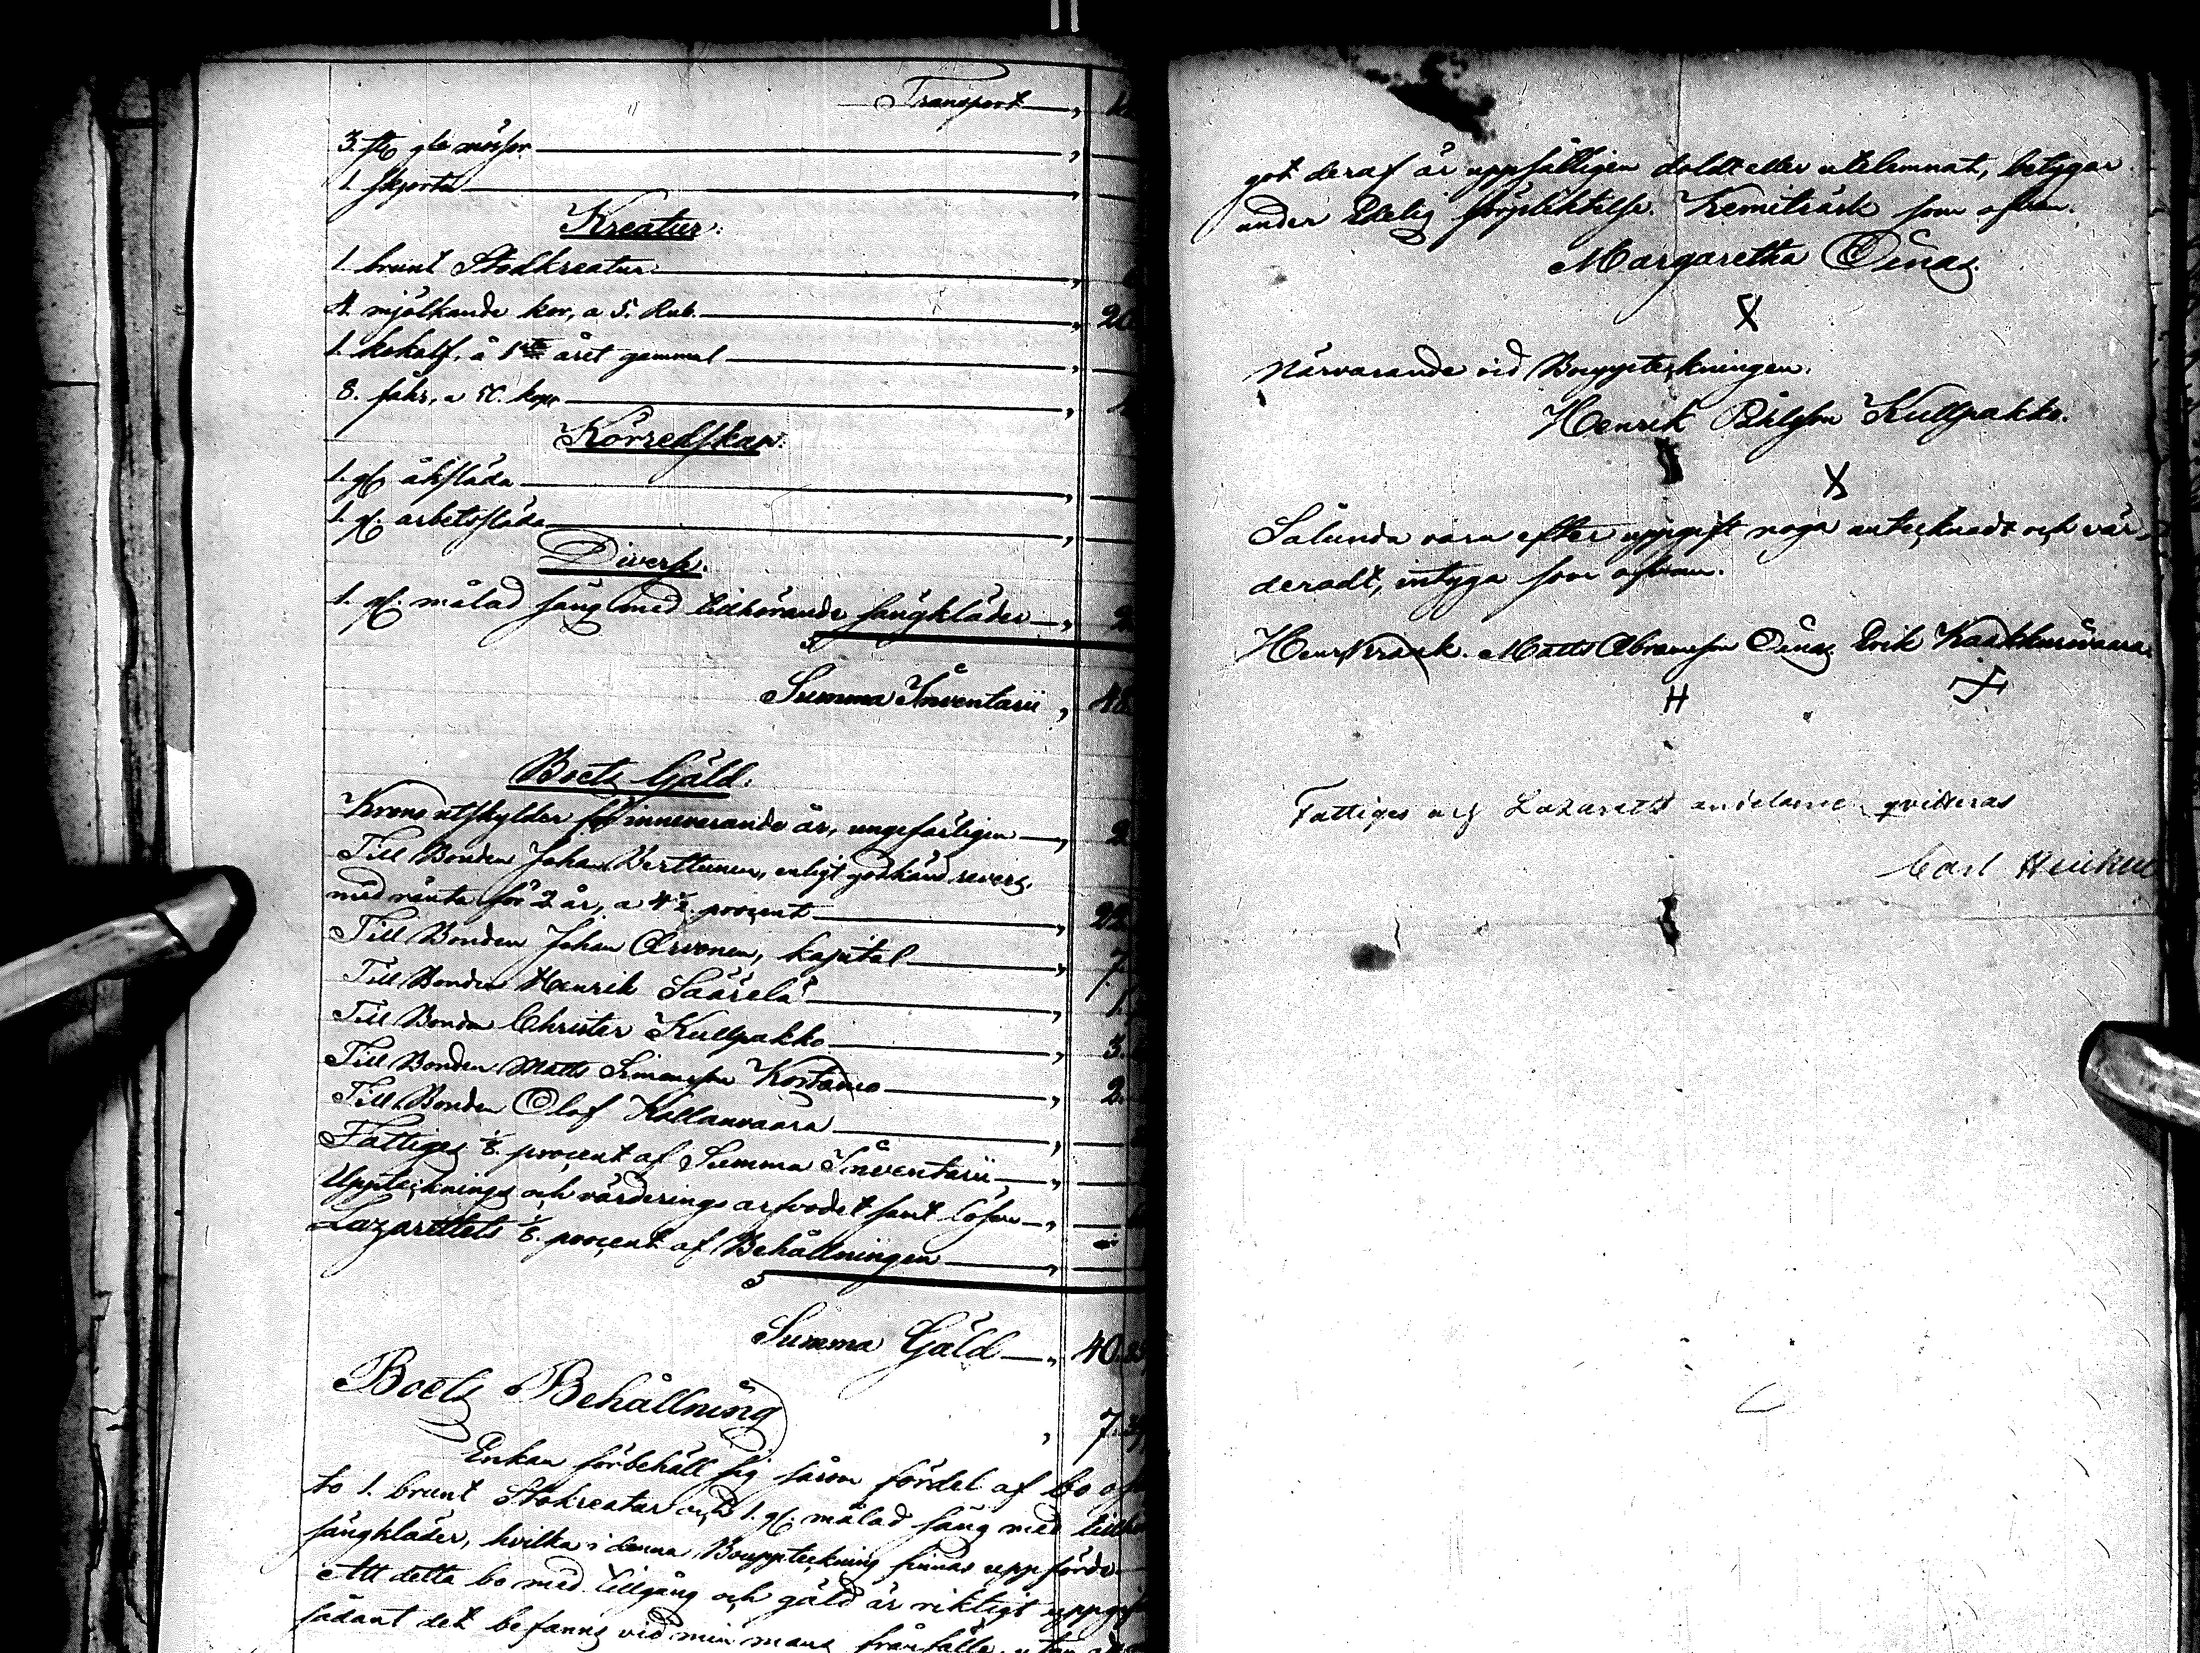 Transport
3. st. gla mössor
1. skjorta
Kreatur.
1. brunt Stodkreatur
4. mjölkande kor, a 5. Rub.
1. kokalf, å 1sta året gammal
8. fåhr, a 50. kope
Körredskap.
1. gl. åksläda
1. gl. arbetssläda
Diverse.
1. gl. målad säng med tillhörande sängkläder
Summa Inventarii
Boets Gäld.
Krono utskylder för innevarande år, ungefärligen 2
Till Bonden Johan Verttunen, enligt godkänd revers,
med ränta för 2 år, a 4½ procent 22
Till Bonden Johan Arvonen, kapital 7.
Till Bonden Henrik Säärelä 1.
Till Bonden Christer Kullpakko 3.
Till Bonden Matts Simonsson Kostamo 2.
Till Bonden Olof Kallanvaara
Fattiges ⅛. procent af Summa Inventarii
Upptecknings och värderings arfvodet samt lösen
Lazarettets ⅛. procent af Behållningen
Summa Gäld 40.
Boets Behållning 7.
Enkan förbehåll sig såsom fördel af bo
to 1. brunt Stokreatur och 1. gl. målad säng med
sängkläder, hvilka i denna Bouppteckning finnas uppförde
Att detta bo med tillgång och gäld är riktigt
sådant det befanns vid min mans frånfälle, utan
got deraf är uppsåtligen doldt eller utelemnat, betygar
under Edelig förpliktelse. Kemiträsk som ofvan.
Margaretha Oinas
X
Närvarande vid Bouppteckningen.
Henrik Påhlson Kullpakko.
X
Sålunda vara efter uppgift noga antecknadt och vär-
deradt, intyga som ofvan.
Henr Krank. Matts Abramsson Oinas Erik Kaakkurivaara
H
Fattiges och Lazaretts andelarne qvitteras
Carl